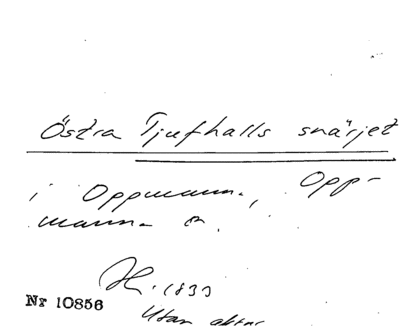 Östra Tjufhalls snärjet
i Oppmanna, Opp-
manna
1833
Nr 10856
Utan aktnr